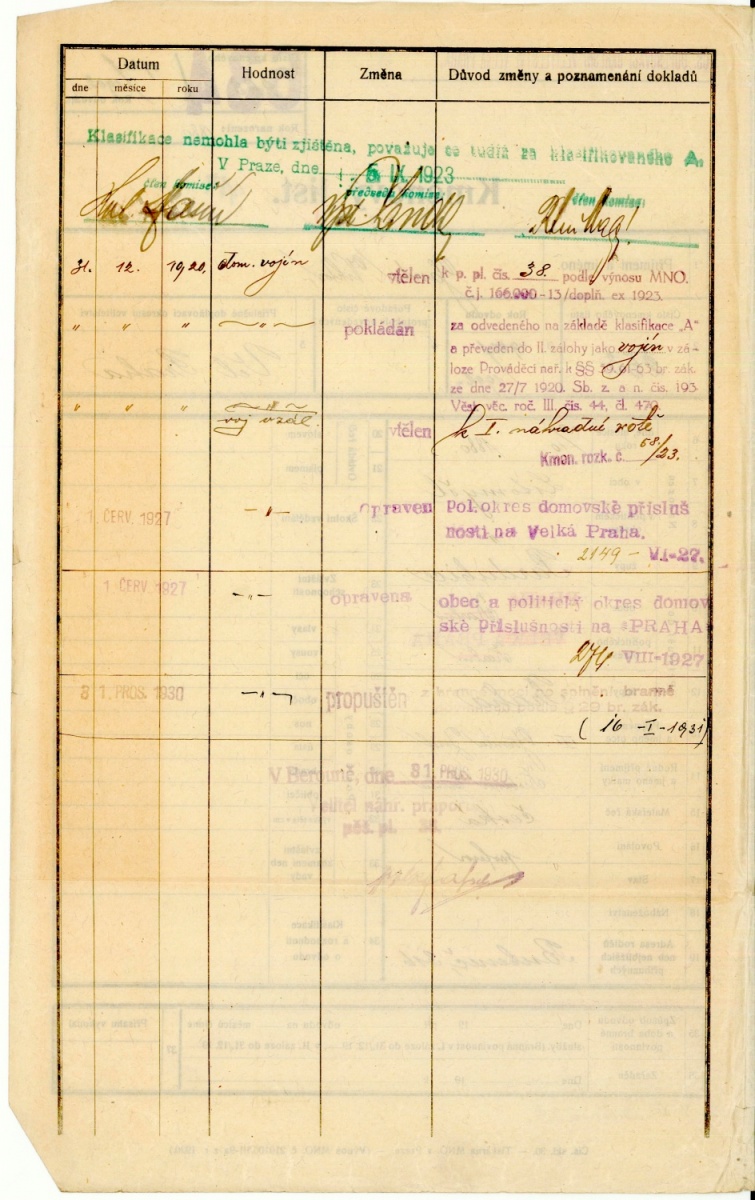 Datum Hodnost Změna Důvod změny a poznamenání dokladů
dne měsíce roku
Klasifikace nemohla býti zjištěna, považuje se tudíž za klasifikovaného A.
V Praze, dne 5 IX. 1923
člen komise: předseda komise: člen komise:
31. 12. 1920. dom. vojín vtělen k p. pl. čís. 38 podle výnosu MNO.
č.j. 166.000-13/doplň. ex 1923.
" " " —„— pokládán za odvedeného na základě klasifikace „A"
a převeden do II. zálohy jako vojín v zá-
loze Prováděcí nař. k §§ 59.61-63 br. zák.
ze dne 27/7 1920. Sb. z. a n. čís. 193
Věst. věc. roč. III. čís. 44, čl. 470.
" " " —„—
voj. v zál. vtělen k I. náhradné rotě
Kmen. rozk. č. 68./23.
1 ČERV. 1927 —„— opraven Pol. okres domovské přísluš
nosti na Velká Praha.
2149 – VI-27.
1 ČERV. 1927 —„— opravena obec a politický okres domov
ské příslušnosti na PRAHA
274 VIII-1927
31. PROS. 1930 —„— propuštěn z branné
29 br. zák.
(16 -I- 1931)
V Berouně, dne 31. PROS. 1930
Velitel náhr. praporu
pěš. pl. 38